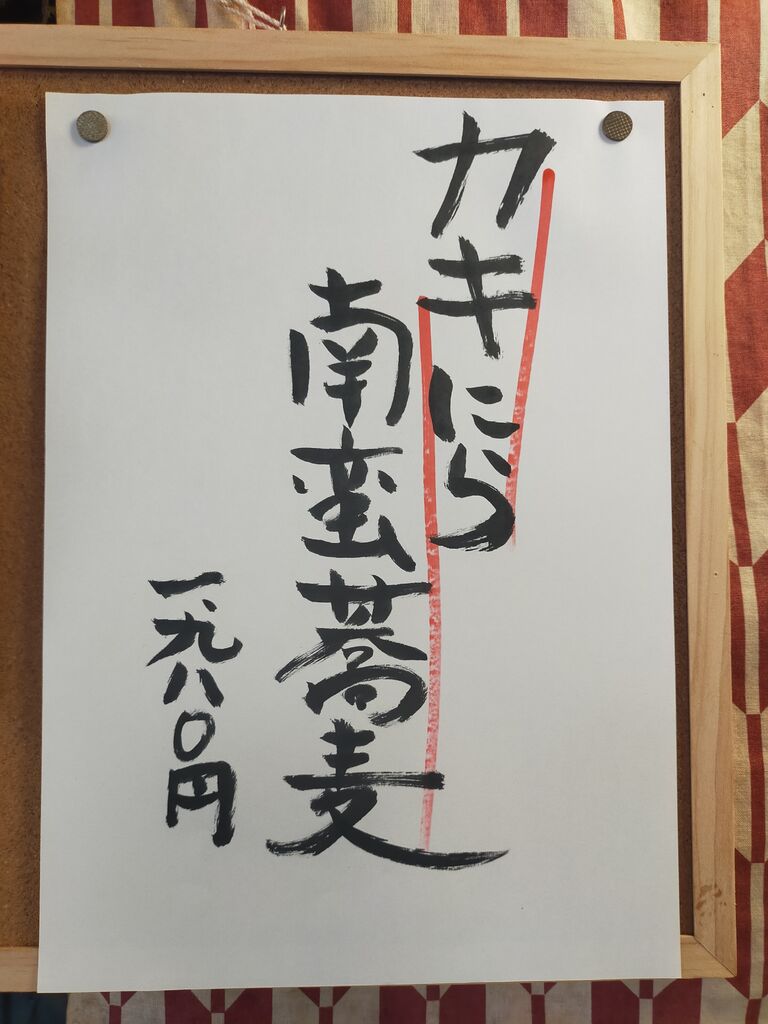 カキにら
南蛮蕎麦
一、九八〇円